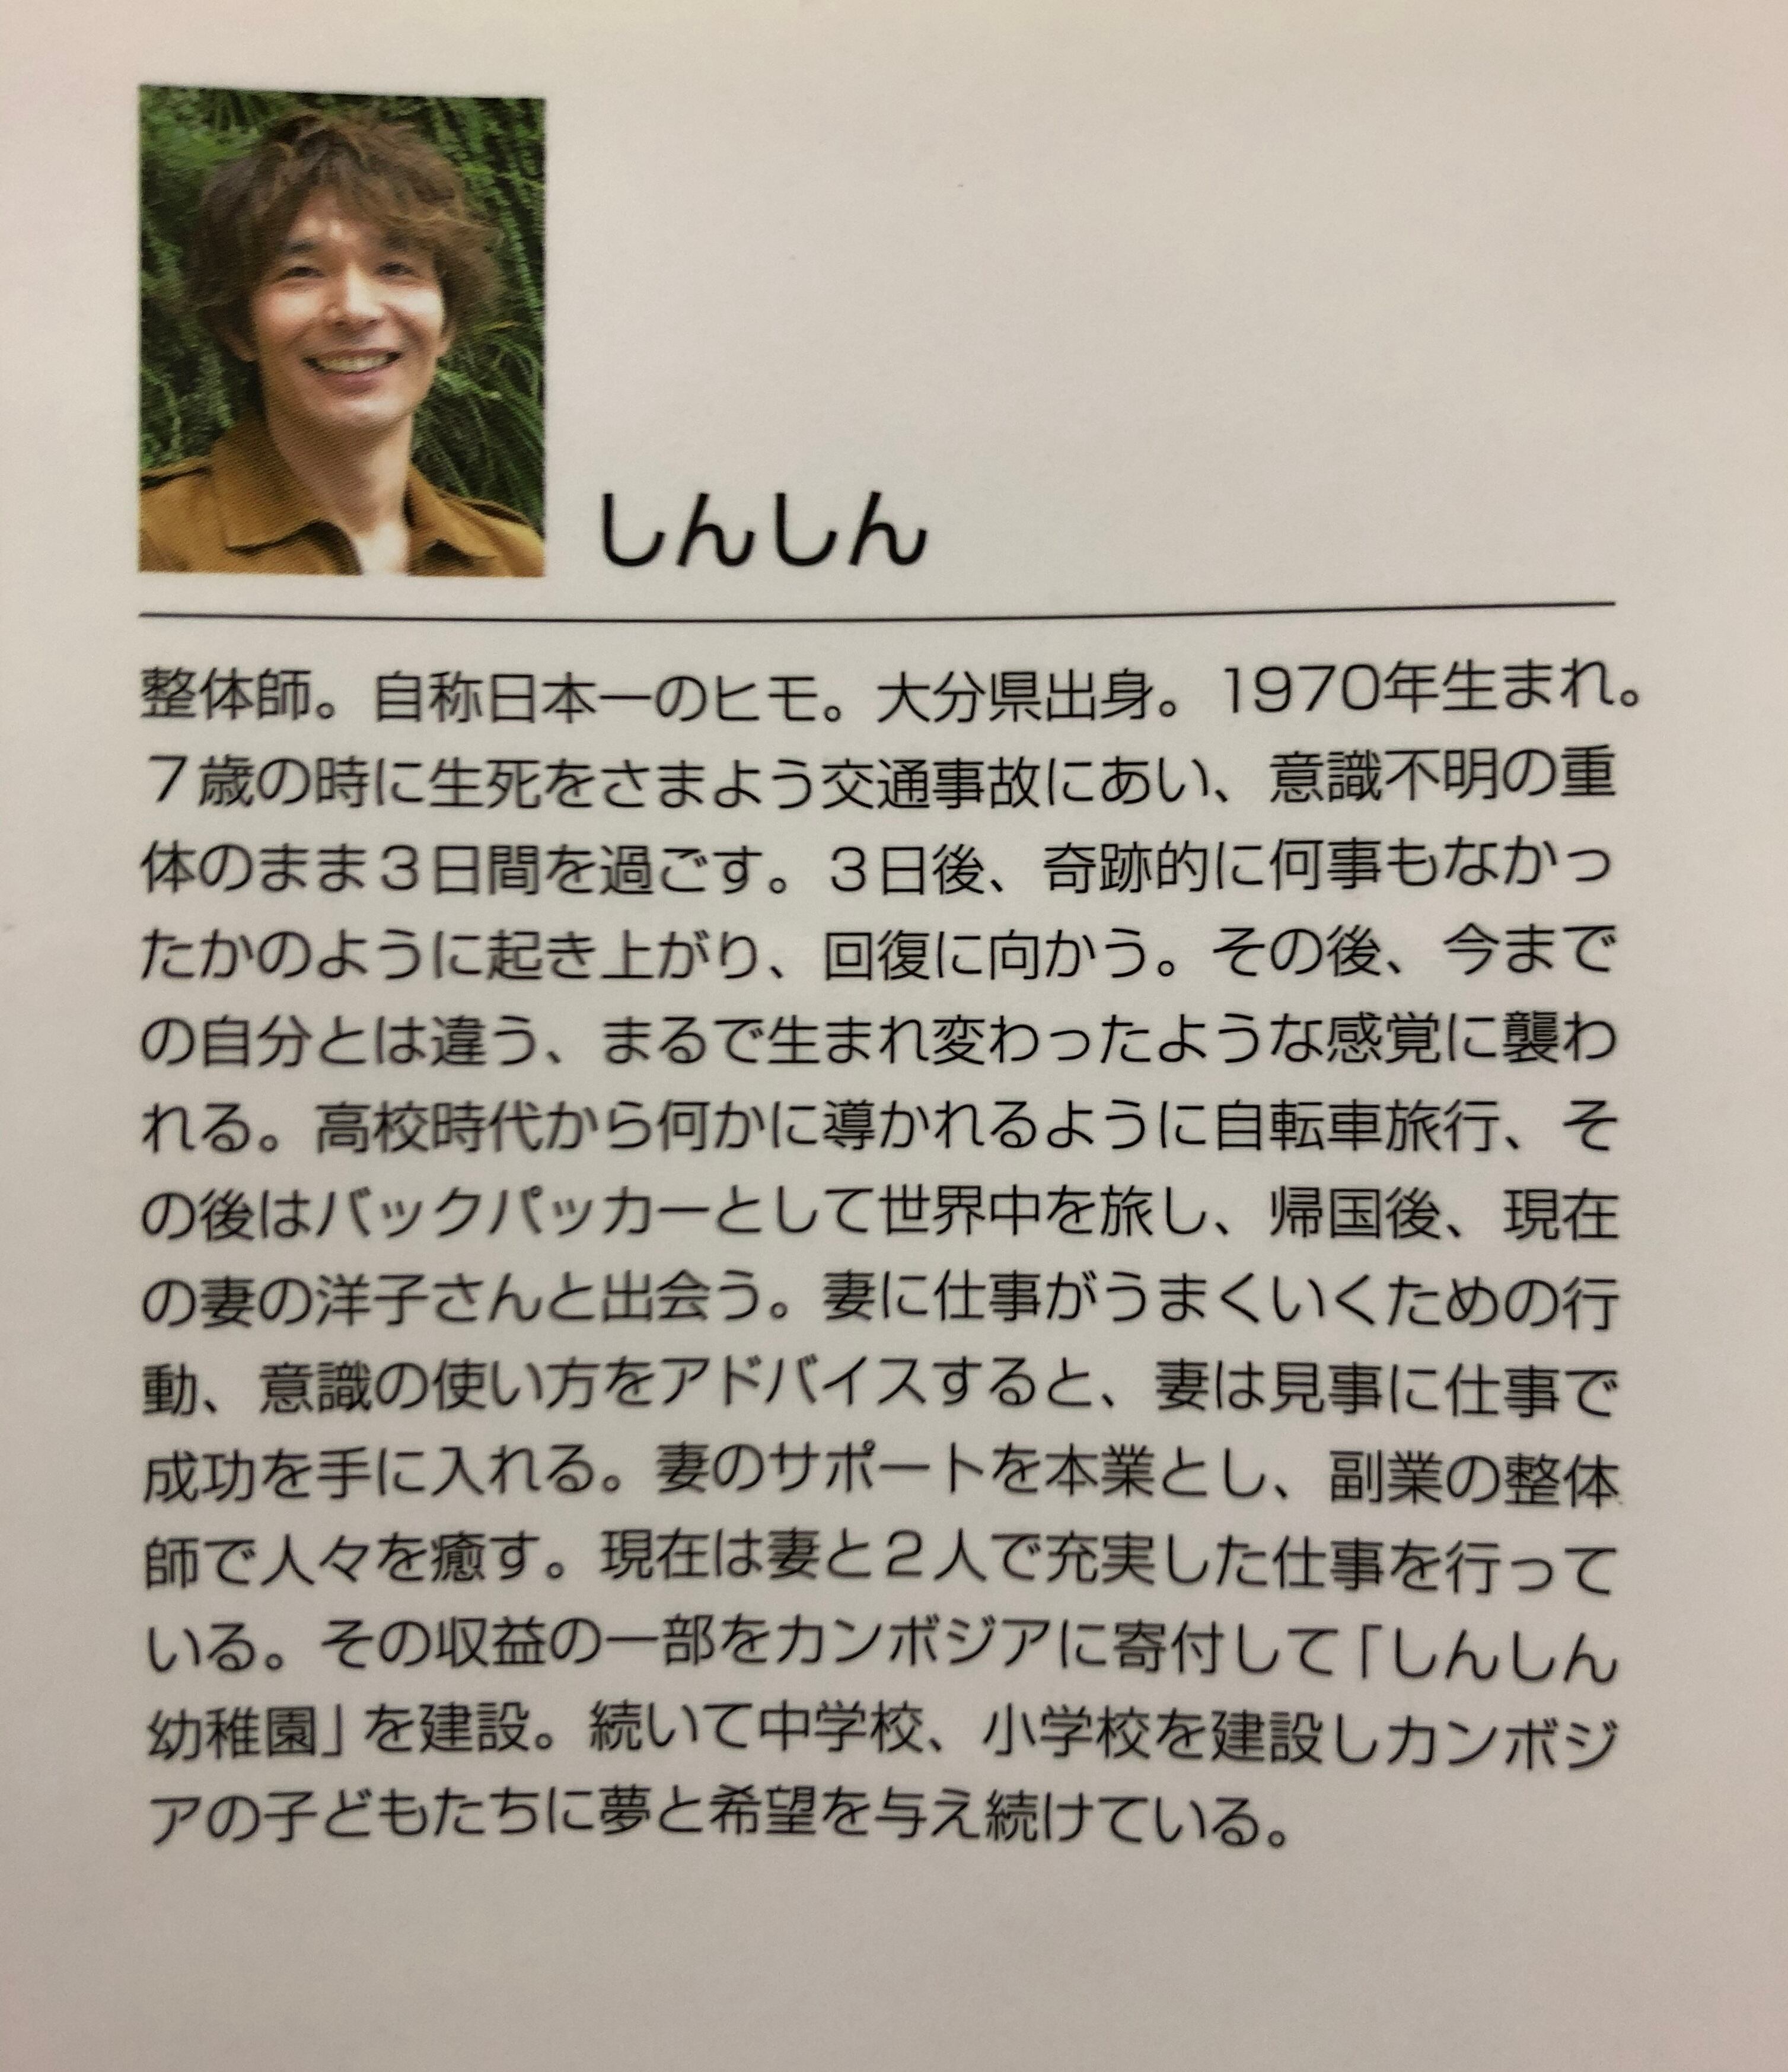 しんしん
整体師。自称日本一のヒモ。大分県出身。1970年生まれ。
7歳の時に生死をさまよう交通事故にあい、意識不明の重
体のまま3日間を過ごす。3日後、奇跡的に何事もなかっ
たかのように起き上がり、回復に向かう。その後、今まで
の自分とは違う、まるで生まれ変わったような感覚に襲わ
れる。高校時代から何かに導かれるように自転車旅行、そ
の後はバックパッカーとして世界中を旅し、帰国後、現在
の妻の洋子さんと出会う。妻に仕事がうまくいくための行
動、意識の使い方をアドバイスすると、妻は見事に仕事で
成功を手に入れる。妻のサポートを本業とし、副業の整体
師で人々を癒す。現在は妻と2人で充実した仕事を行って
いる。その収益の一部をカンボジアに寄付して「しんしん
幼稚園」を建設。続いて中学校、小学校を建設しカンボジ
アの子どもたちに夢と希望を与え続けている。